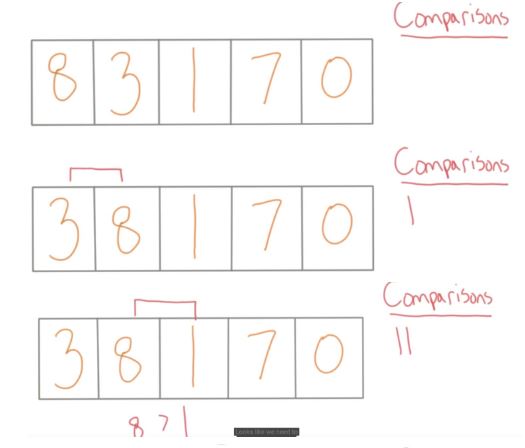 Comparisons
8 3 1 7 0
Comparisons
3 8 1 7 0
I
Comparisons
3 8 1 7 0
II
8 > 1
Looks like we need to